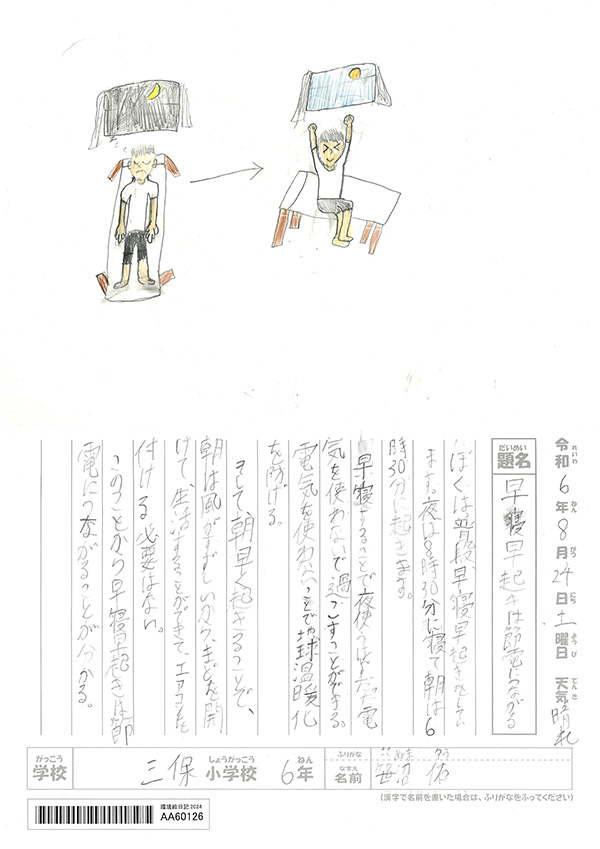 令和6年8月24日土曜日 天気晴れ
れいわ ねん がつ にち ようび てんき
だいめい
題名 早寝早起きは節電につながる
ぼくは普段早寝早起きをしてい
ます。夜は8時30分に寝て朝は6
時30分に起きます。
早寝することで夜使うはずだった電
気を使わないで過ごすことができる。
電気を使わないことで地球温暖化
を防げる。
そして、朝早く起きることで、
朝は風がすずしいから、まどを開
けて、生活することができて、エアコンを
付ける必要はない。
このことから早寝早起きは節
電につながることが分かる。
がっこう しょうがっこう ねん ふりがな ささぬま
学校 三保小学校 6年 なまえ 名前 笹沼 佑
(漢字で名前を書いた場合は、ふりがなをふってください)
環境絵日記2024
AA60126